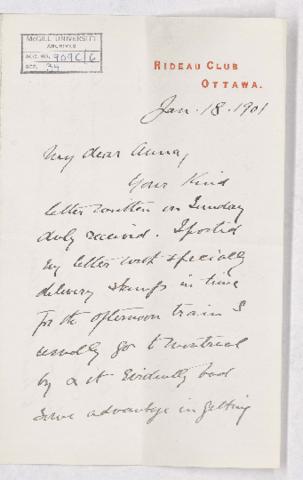 McGILL UNIVERSITY
ARCHIVES
ACC. NO. 909C/6
REF. 34
RIDEAU CLUB
OTTAWA.
Jan. 18. 1901
My dear Anna,
Your kind
letter written on Sunday
duly received. I posted
my letter with specially
delivery stamps in time
for the afternoon train I
usually go to Montreal
by & it evidently had
some advantage in getting